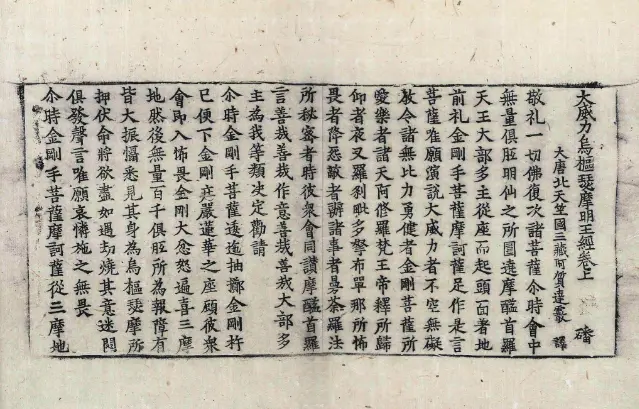 大威力烏樞瑟摩明王經卷上 磻
大唐北天竺國三藏阿質達霰 譯
敬礼一切佛復次諸菩薩尒時會中
無量俱胝明仙之所圍遶摩醯首羅
天王大部多主從座而起頭面著地
前礼金剛手菩薩摩訶薩足作是言
菩薩唯願演說大威力者不空無礙
教令諸無比力勇健者金剛菩薩所
愛樂者諸天阿修羅梵王帝釋所歸
仰者夜叉羅剎毗多拏布單那所怖
畏者降惡敵者辦諸事者曼荼羅法
所秘密者時彼衆會同讚摩醯首羅
言善哉善哉作意善哉善哉大部多
主為我等類決定勸請
尒時金剛手菩薩遶迤抽擲金剛杵
已便下金剛座嚴蓮華之座顧彼衆
會即入怖畏金剛大忿怒遍喜三摩
地然後無量百千俱胝所為報障有
皆大振懾悉見其身為烏樞瑟摩所
押伏命將欲盡如遇劫燒其意迷悶
俱發聲言唯願哀憐施之無畏
尒時金剛手菩薩摩訶薩從三摩地